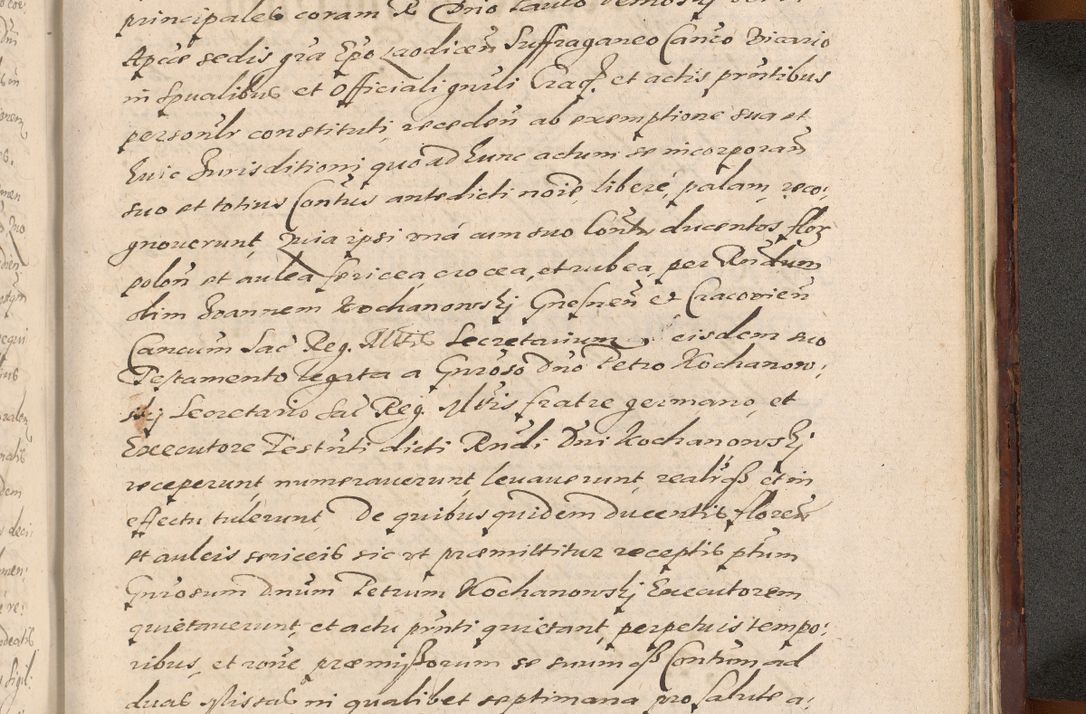 principales coram R Dno Paulo
Aplicae sedis gra Epo Laodicen Suffraganeo Canco Vicario
in Spualibus et Officiali gnrli Crac. et actis pntibus
personlr constituti, receden ab exemptione sua et
huic Jurisditioni quo ad hunc actum se incorporan
suo et totius Contus antedicti noie, liberé, palam, reco:
gnoverunt, Quia ipsi uná cum suo Contu ducentos flor
polon et aulea sericea, crocea, et rubea, per Rndum
olim Joannem Kochanowskj Gnesnen et Cracovien
Cancum Sac Reg. Mttis Secretarium eisdem suo
Testamento legata a Gnroso Dno Petro Kochanow:
skij Secretario Sac Reg. Mttis fratre germano, et
Executore Testnti dicti Rndi Dni Kochanowskj
receperunt, numeraverunt, levaverunt, realiq et in
effectu tulerunt De quibus quidem Ducentis floren
et auleis sericeis sic ut præmittitur receptis ptum
Gnrosum Dnum Petrum Kochanowskj Executorem
quietaverunt, et actu pnti quietant, perpetuis tempo:
ribus, et rone præmissorum se suum q Contum ad
duas Missas in qualibet septimana pro salute a: